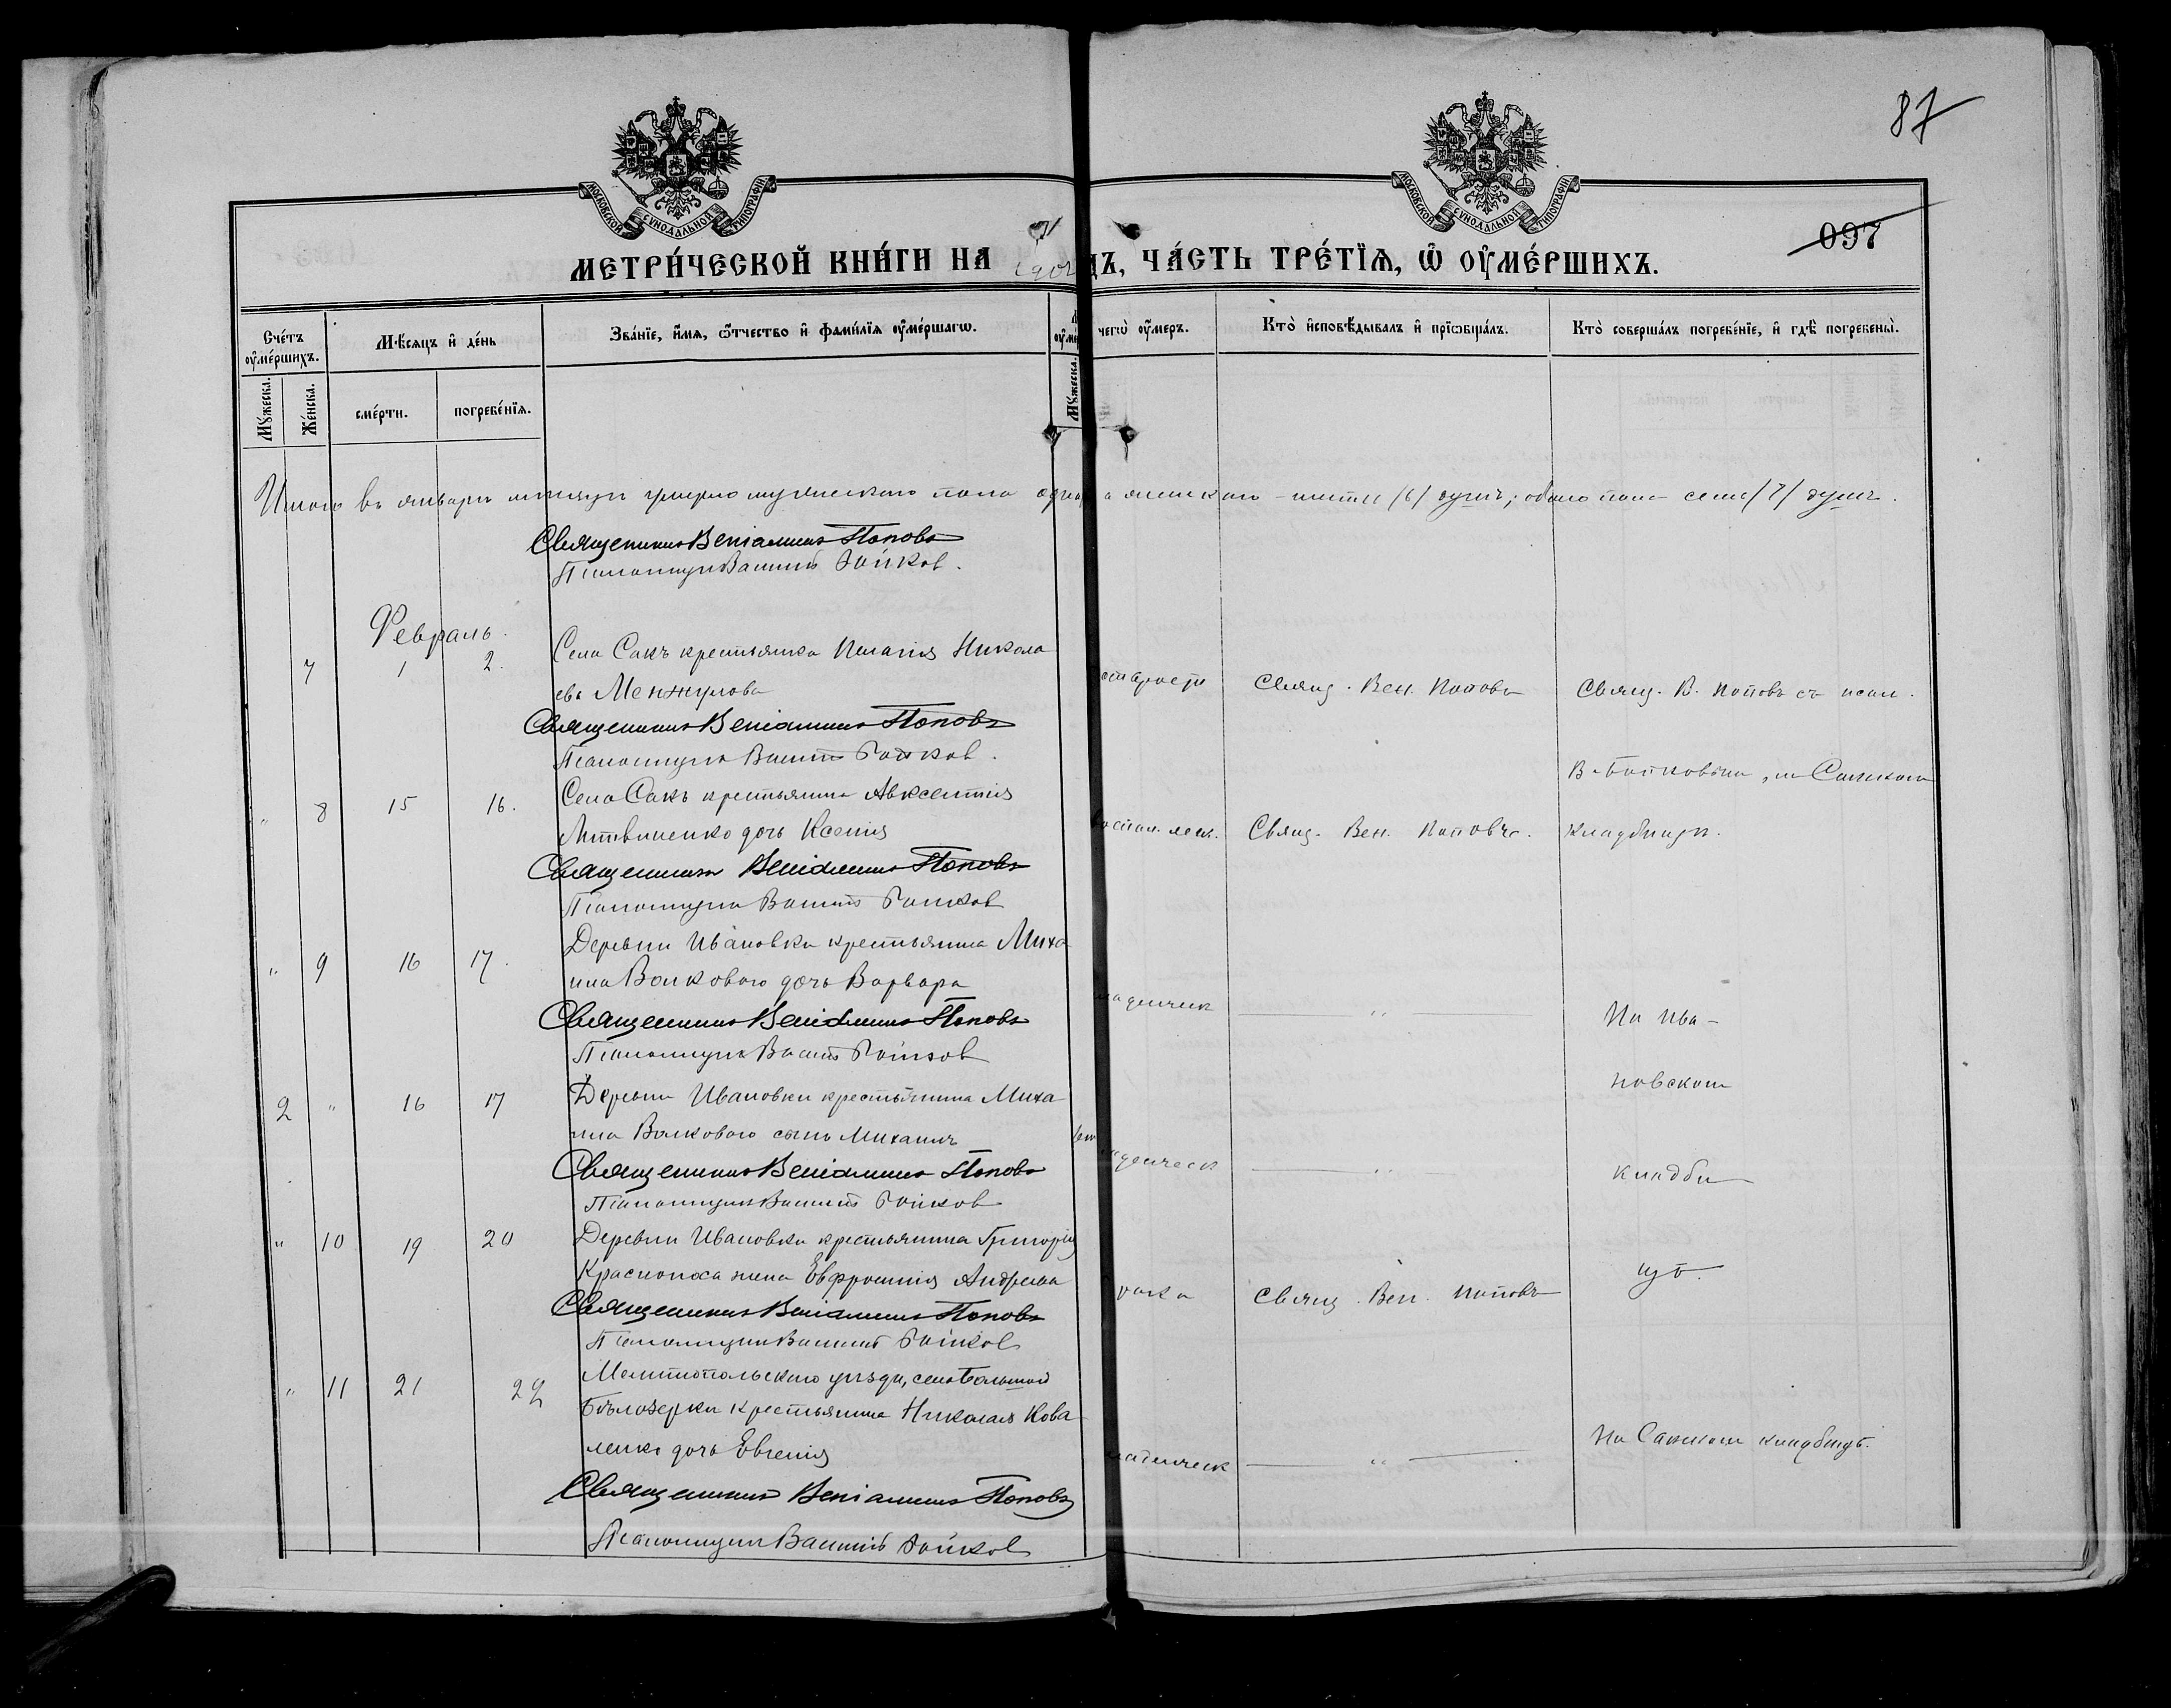 87
097
МОСКОВСКОЙ СУНОДАЛЬНОЙ ТИПОГРАФІИ
МОСКОВСКОЙ СУНОДАЛЬНОЙ ТИПОГРАФІИ
МЕТРИ́ЧЕСКОЙ КНИ́ГИ НА 190 ДЪ, ЧА́СТЬ ТРЕ́ТЇѦ, Ѽ ОУ҆МЕ́РШИХЪ.
Сче́тъ оу҆ме́ршихъ.
Мѣ́сяцъ и҆ де́нь
Зва́нїе, и҆́мѧ, ѻ҆́тчество и҆ фами́лїѧ оу҆ме́ршагѡ.
чегѡ̀ оу҆́меръ.
Кто̀ и҆сповѣ́дывалъ и҆ прїѡбща́лъ.
Кто̀ соверша́лъ погребе́нїе, и҆ гдѣ̀ погребены̀.
Мꙋ́жеска.
Же́нска.
сме́рти.
погребе́нїѧ.
Мꙋ́жеска.
Итого въ январѣ мѣсяцѣ умерло мужескаго пола одна, а женскаго - шесть /6/ душъ; обоего пола семь /7/ душъ.
Священникъ Веніаминъ Поповъ
Псаломщикъ Василій Бойков.
Февраль.
7 1 2. Села Сакъ крестьянка Пелагія Никола
ева Менжулова
старости Свящ. Вен. Поповъ Свящ. В. Поповъ съ псал.
Священникъ Веніаминъ Поповъ
Псаломщикъ Василій Бойков.
В. Бойковымъ, на Сакском
„ 8 15 16. Села Сакъ крестьянина Авксентія
Литвиненко дочь Ксенія
воспал. легк. Свящ. Вен. Поповъ. кладбищѣ.
Священникъ Веніаминъ Поповъ
Псаломщикъ Василій Бойков
„ 9 16 17. Деревни Ивановки крестьянина Миха
ила Волкового дочь Варвара
младенческ „ На Ива-
Священникъ Веніаминъ Поповъ
Псаломщикъ Василій Бойков
2 „ 16 17 Деревни Ивановки крестьянина Миха
новском
ила Волкового сынъ Михаилъ
младенческ „ кладби
Священникъ Веніаминъ Поповъ
Псаломщикъ Василій Бойков
„ 10 19 20 Деревни Ивановки крестьянина Григорія
Красноноса жена Евфросинія Андреева
рака Свящ. Вен. Поповъ щѣ.
Священникъ Веніаминъ Поповъ
Псаломщикъ Василій Бойков
„ 11 21 22 Мелитопольскаго уѣзда, села Большой
Бѣлозерки крестьянина Николая Кова
ленко дочь Евгенія
младенческ „ На Сакском кладбищѣ.
Священникъ Веніаминъ Поповъ
Псаломщикъ Василій Бойков